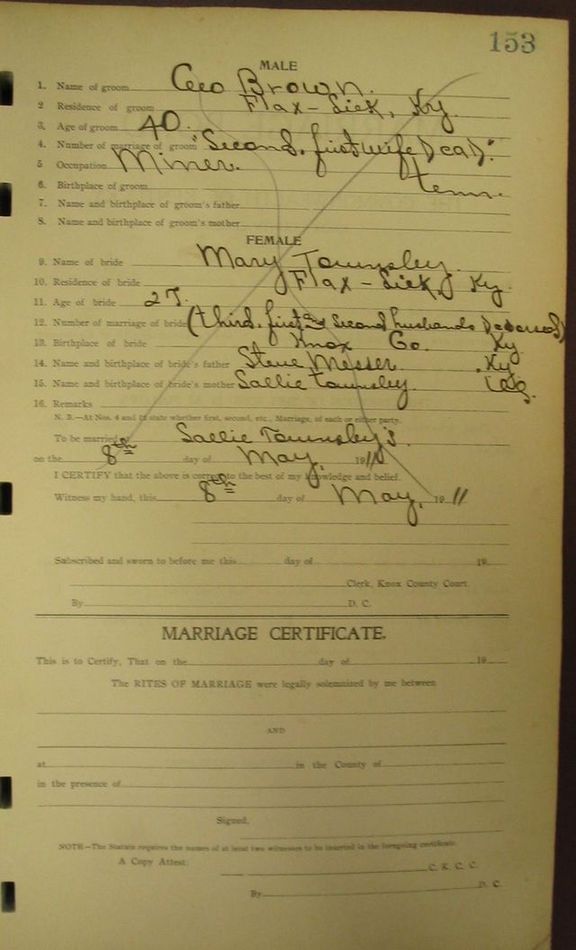 153
MALE
1. Name of groom Geo Brown.
2 Residence of groom Flax-Lick, Ky.
3. Age of groom 40.
4. Number of marriage of groom "Second, first wife Dead."
5 Occupation Miner.
6. Birthplace of groom Tenn.
7. Name and birthplace of groom's father
8. Name and birthplace of groom's mother
FEMALE
9. Name of bride Mary Townsley
10. Residence of bride Flax-Lick, Ky.
11. Age of bride 27.
12. Number of marriage of bride (third, first & second husbands Deceased)
13. Birthplace of bride Knox Co. Ky
14. Name and birthplace of bride's father Steve Messer. Ky
15. Name and birthplace of bride's mother Sallie Townsley.
16. Remarks
N. B.—At Nos. 4 and 12 state whether first, second, etc., Marriage, of each or either party.
To be married at Sallie Townsley's.
on the 8th day of May, 1911
I CERTIFY that the above is correct to the best of my knowledge and belief.
Witness my hand, this 8th day of May, 1911
Subscribed and sworn to before me this day of 19
Clerk, Knox County Court.
By D. C.
MARRIAGE CERTIFICATE.
This is to Certify, That on the day of 19
The RITES OF MARRIAGE were legally solemnized by me between
AND
at in the County of
in the presence of
Signed,
NOTE—The Statute requires the names of at least two witnesses to be inserted in the foregoing certificate.
A Copy Attest: C. K. C. C.
By D. C.